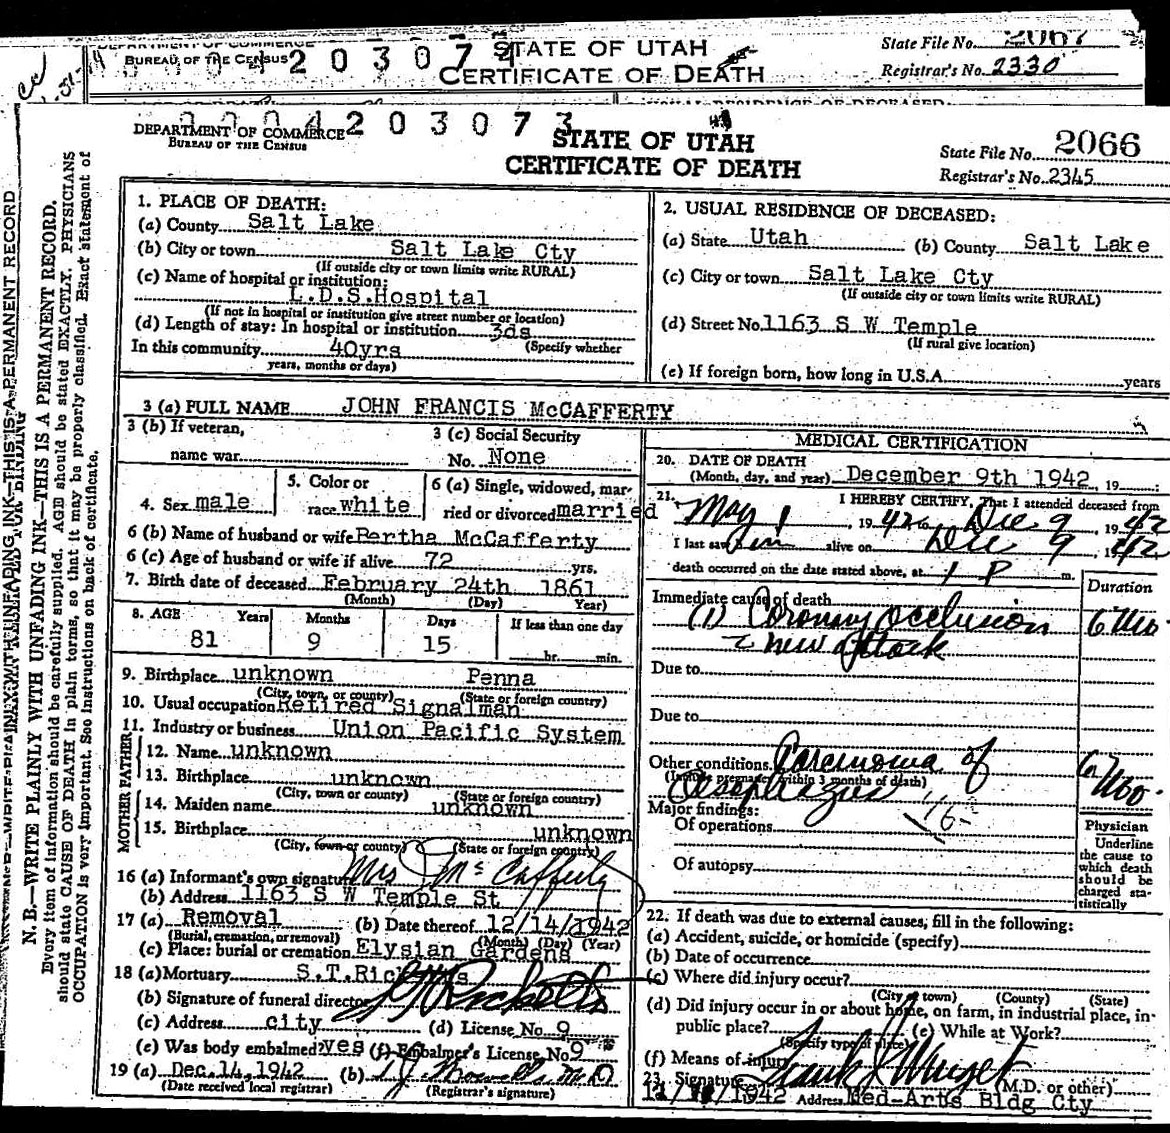 DEPARTMENT OF COMMERCE
BUREAU OF THE CENSUS
203074
STATE OF UTAH
CERTIFICATE OF DEATH
State File No. 2067
Registrar's No. 2330
DEPARTMENT OF COMMERCE
BUREAU OF THE CENSUS
203073
STATE OF UTAH
CERTIFICATE OF DEATH
State File No. 2066
Registrar's No. 2345
N. B.—WRITE PLAINLY WITH UNFADING INK—THIS IS A PERMANENT RECORD.
Every item of information should be carefully supplied. AGE should be stated EXACTLY. PHYSICIANS
should state CAUSE OF DEATH in plain terms, so that it may be properly classified. Exact statement of
OCCUPATION is very important. See instructions on back of certificate.
1. PLACE OF DEATH:
(a) County Salt Lake
(b) City or town Salt Lake Cty
(If outside city or town limits write RURAL)
(c) Name of hospital or institution:
L.D.S.Hospital
(If not in hospital or institution give street number or location)
(d) Length of stay: In hospital or institution 3ds
(Specify whether
In this community 40yrs
years, months or days)
2. USUAL RESIDENCE OF DECEASED:
(a) State Utah (b) County Salt Lake
(c) City or town Salt Lake Cty
(If outside city or town limits write RURAL)
(d) Street No. 1163 S W Temple
(If rural give location)
(e) If foreign born, how long in U.S.A. years
3 (a) FULL NAME JOHN FRANCIS McCAFFERTY
3 (b) If veteran,
name war
3 (c) Social Security
No. None
4. Sex male
5. Color or
race white
6 (a) Single, widowed, mar-
ried or divorced married
6 (b) Name of husband or wife Bertha McCafferty
6 (c) Age of husband or wife if alive 72 yrs.
7. Birth date of deceased February 24th 1861
(Month) (Day) Year)
8. AGE Years Months Days If less than one day
81 9 15 hr. min.
9. Birthplace unknown Penna
(City, town, or county) (State or foreign country)
10. Usual occupation Retired Signalman
11. Industry or business Union Pacific System
FATHER
12. Name unknown
13. Birthplace unknown
(City, town or county) (State or foreign country)
MOTHER
14. Maiden name unknown
15. Birthplace unknown
(City, town or county) (State or foreign country)
16 (a) Informant's own signature Mrs J McCafferty
(b) Address 1163 S W Temple St
17 (a) Removal (b) Date thereof 12/14/1942
(Burial, cremation, or removal) (Month) (Day) (Year)
(c) Place: burial or cremation Elysian Gardens
18 (a) Mortuary S.T.Ricketts
(b) Signature of funeral director Ricketts
(c) Address city (d) License No. 9
(e) Was body embalmed? yes (f) Embalmer's License No. 9
19 (a) Dec. 14, 1942 (b) M.D.
(Date received local registrar) (Registrar's signature)
MEDICAL CERTIFICATION
20. DATE OF DEATH
(Month, day, and year) December 9th 1942, 19
21. I HEREBY CERTIFY, That I attended deceased from
May 1, 1942 to Dec 9, 1942
I last saw him alive on Dec 9, 1942
death occurred on the date stated above, at 1 P m.
Duration
Immediate cause of death
(1) Coronary Occlusion 6 Mo
new attack
Due to
Due to
Other conditions Carcinoma of
(Include pregnancy within 3 months of death)
Oesophagus 6 Mo.
Major findings:
Of operations
Of autopsy
Physician
Underline
the cause to
which death
should be
charged sta-
tistically
22. If death was due to external causes, fill in the following:
(a) Accident, suicide, or homicide (specify)
(b) Date of occurrence
(c) Where did injury occur?
(City or town) (County) (State)
(d) Did injury occur in or about home, on farm, in industrial place, in-
public place? (e) While at Work?
(Specify type of place)
(f) Means of injury
23. Signature Frank J Winget (M.D. or other)
1942 Address Med-Arts Bldg Cty